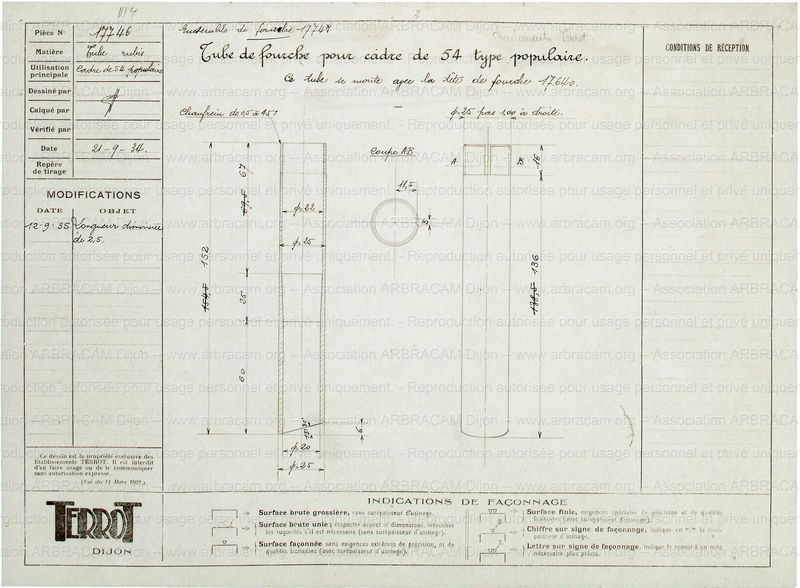 Pièce N° 17746
Matière
Utilisation principale Cadre de 54 populaire
Dessiné par
Calqué par
Vérifié par
Date 21-9-34.
Repère de tirage
MODIFICATIONS
DATE OBJET
12-9-35 Longueur diminuée
de 2,5.
Ensemble de fourche 17747
Tube de fourche pour cadre de 54 type populaire.
Ce tube se monte avec la tête de fourche 17640.
CONDITIONS DE RÉCEPTION
Chanfrein de 0,5 à 45°
φ.25 pas 1,00 à droite.
Coupe AB
A
B
16
11,5
3
67
69,5
φ.22
φ.25
152
154,5
25
60
136
138,5
6
φ.20
φ.25
Ce dessin est la propriété exclusive des
Etablissements TERROT. Il est interdit
d'en faire usage ou de le communiquer
sans autorisation expresse.
(Loi du 11 Mars 1902.)
TERROT
DIJON
INDICATIONS DE FAÇONNAGE
Surface brute grossière, sans surépaisseur d'usinage.
Surface brute unie; respecter aspect et dimensions, retoucher
les rugosités s'il est nécessaire (sans surépaisseur d'usinage).
Surface façonnée sans exigences extrêmes de précision, ni de
qualités frottantes (avec surépaisseur d'usinage).
Surface finie, exigences spéciales de précision et de qualités
frottantes (avec surépaisseur d'usinage).
Chiffre sur signe de façonnage, indique en
paisseur d'usinage.
Lettre sur signe de façonnage, indique le renvoi à un nota
nécessaire plus précis.
Association ARBRACAM Dijon - www.arbracam.org - Reproduction autorisée pour usage personnel et privé uniquement.